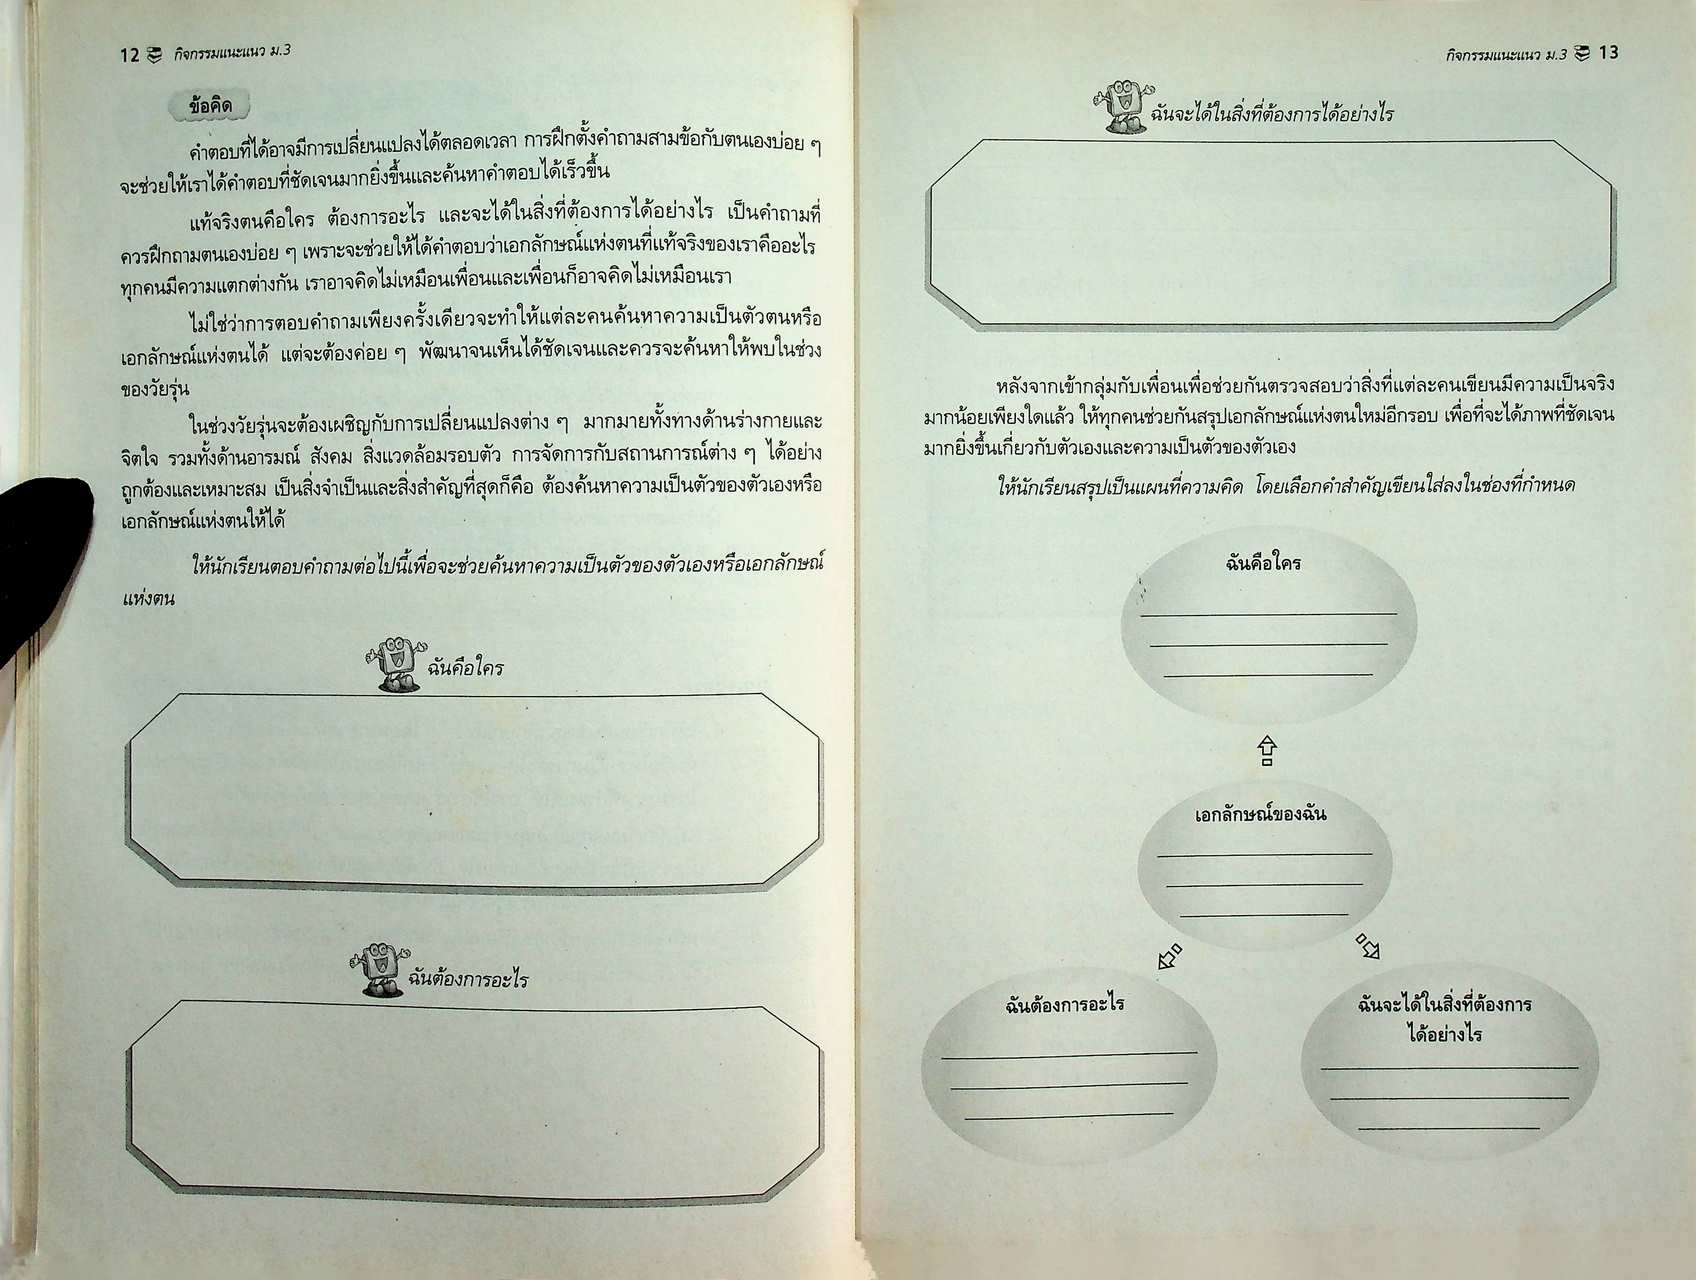 12 กิจกรรมแนะแนว ม.3
ข้อคิด
คำตอบที่ได้อาจมีการเปลี่ยนแปลงได้ตลอดเวลา การฝึกตั้งคำถามสามข้อกับตนเองบ่อย ๆ
จะช่วยให้เราได้คำตอบที่ชัดเจนมากยิ่งขึ้นและค้นหาคำตอบได้เร็วขึ้น
แท้จริงตนคือใคร ต้องการอะไร และจะได้ในสิ่งที่ต้องการได้อย่างไร เป็นคำถามที่
ควรฝึกถามตนเองบ่อย ๆ เพราะจะช่วยให้ได้คำตอบว่าเอกลักษณ์แห่งตนที่แท้จริงของเราคืออะไร
ทุกคนมีความแตกต่างกัน เราอาจคิดไม่เหมือนเพื่อนและเพื่อนก็อาจคิดไม่เหมือนเรา
ไม่ใช่ว่าการตอบคำถามเพียงครั้งเดียวจะทำให้แต่ละคนค้นหาความเป็นตัวตนหรือ
เอกลักษณ์แห่งตนได้ แต่จะต้องค่อย ๆ พัฒนาจนเห็นได้ชัดเจนและควรจะค้นหาให้พบในช่วง
ของวัยรุ่น
ในช่วงวัยรุ่นจะต้องเผชิญกับการเปลี่ยนแปลงต่าง ๆ มากมายทั้งทางด้านร่างกายและ
จิตใจ รวมทั้งด้านอารมณ์ สังคม สิ่งแวดล้อมรอบตัว การจัดการกับสถานการณ์ต่าง ๆ ได้อย่าง
ถูกต้องและเหมาะสม เป็นสิ่งจำเป็นและสิ่งสำคัญที่สุดก็คือ ต้องค้นหาความเป็นตัวของตัวเองหรือ
เอกลักษณ์แห่งตนให้ได้
ให้นักเรียนตอบคำถามต่อไปนี้เพื่อจะช่วยค้นหาความเป็นตัวของตัวเองหรือเอกลักษณ์
แห่งตน
ฉันคือใคร
ฉันต้องการอะไร
กิจกรรมแนะแนว ม.3 13
ฉันจะได้ในสิ่งที่ต้องการได้อย่างไร
หลังจากเข้ากลุ่มกับเพื่อนเพื่อช่วยกันตรวจสอบว่าสิ่งที่แต่ละคนเขียนมีความเป็นจริง
มากน้อยเพียงใดแล้ว ให้ทุกคนช่วยกันสรุปเอกลักษณ์แห่งตนใหม่อีกรอบ เพื่อที่จะได้ภาพที่ชัดเจน
มากยิ่งขึ้นเกี่ยวกับตัวเองและความเป็นตัวของตัวเอง
ให้นักเรียนสรุปเป็นแผนที่ความคิด โดยเลือกคำสำคัญเขียนใส่ลงในช่องที่กำหนด
ฉันคือใคร
เอกลักษณ์ของฉัน
ฉันต้องการอะไร
ฉันจะได้ในสิ่งที่ต้องการ
ได้อย่างไร